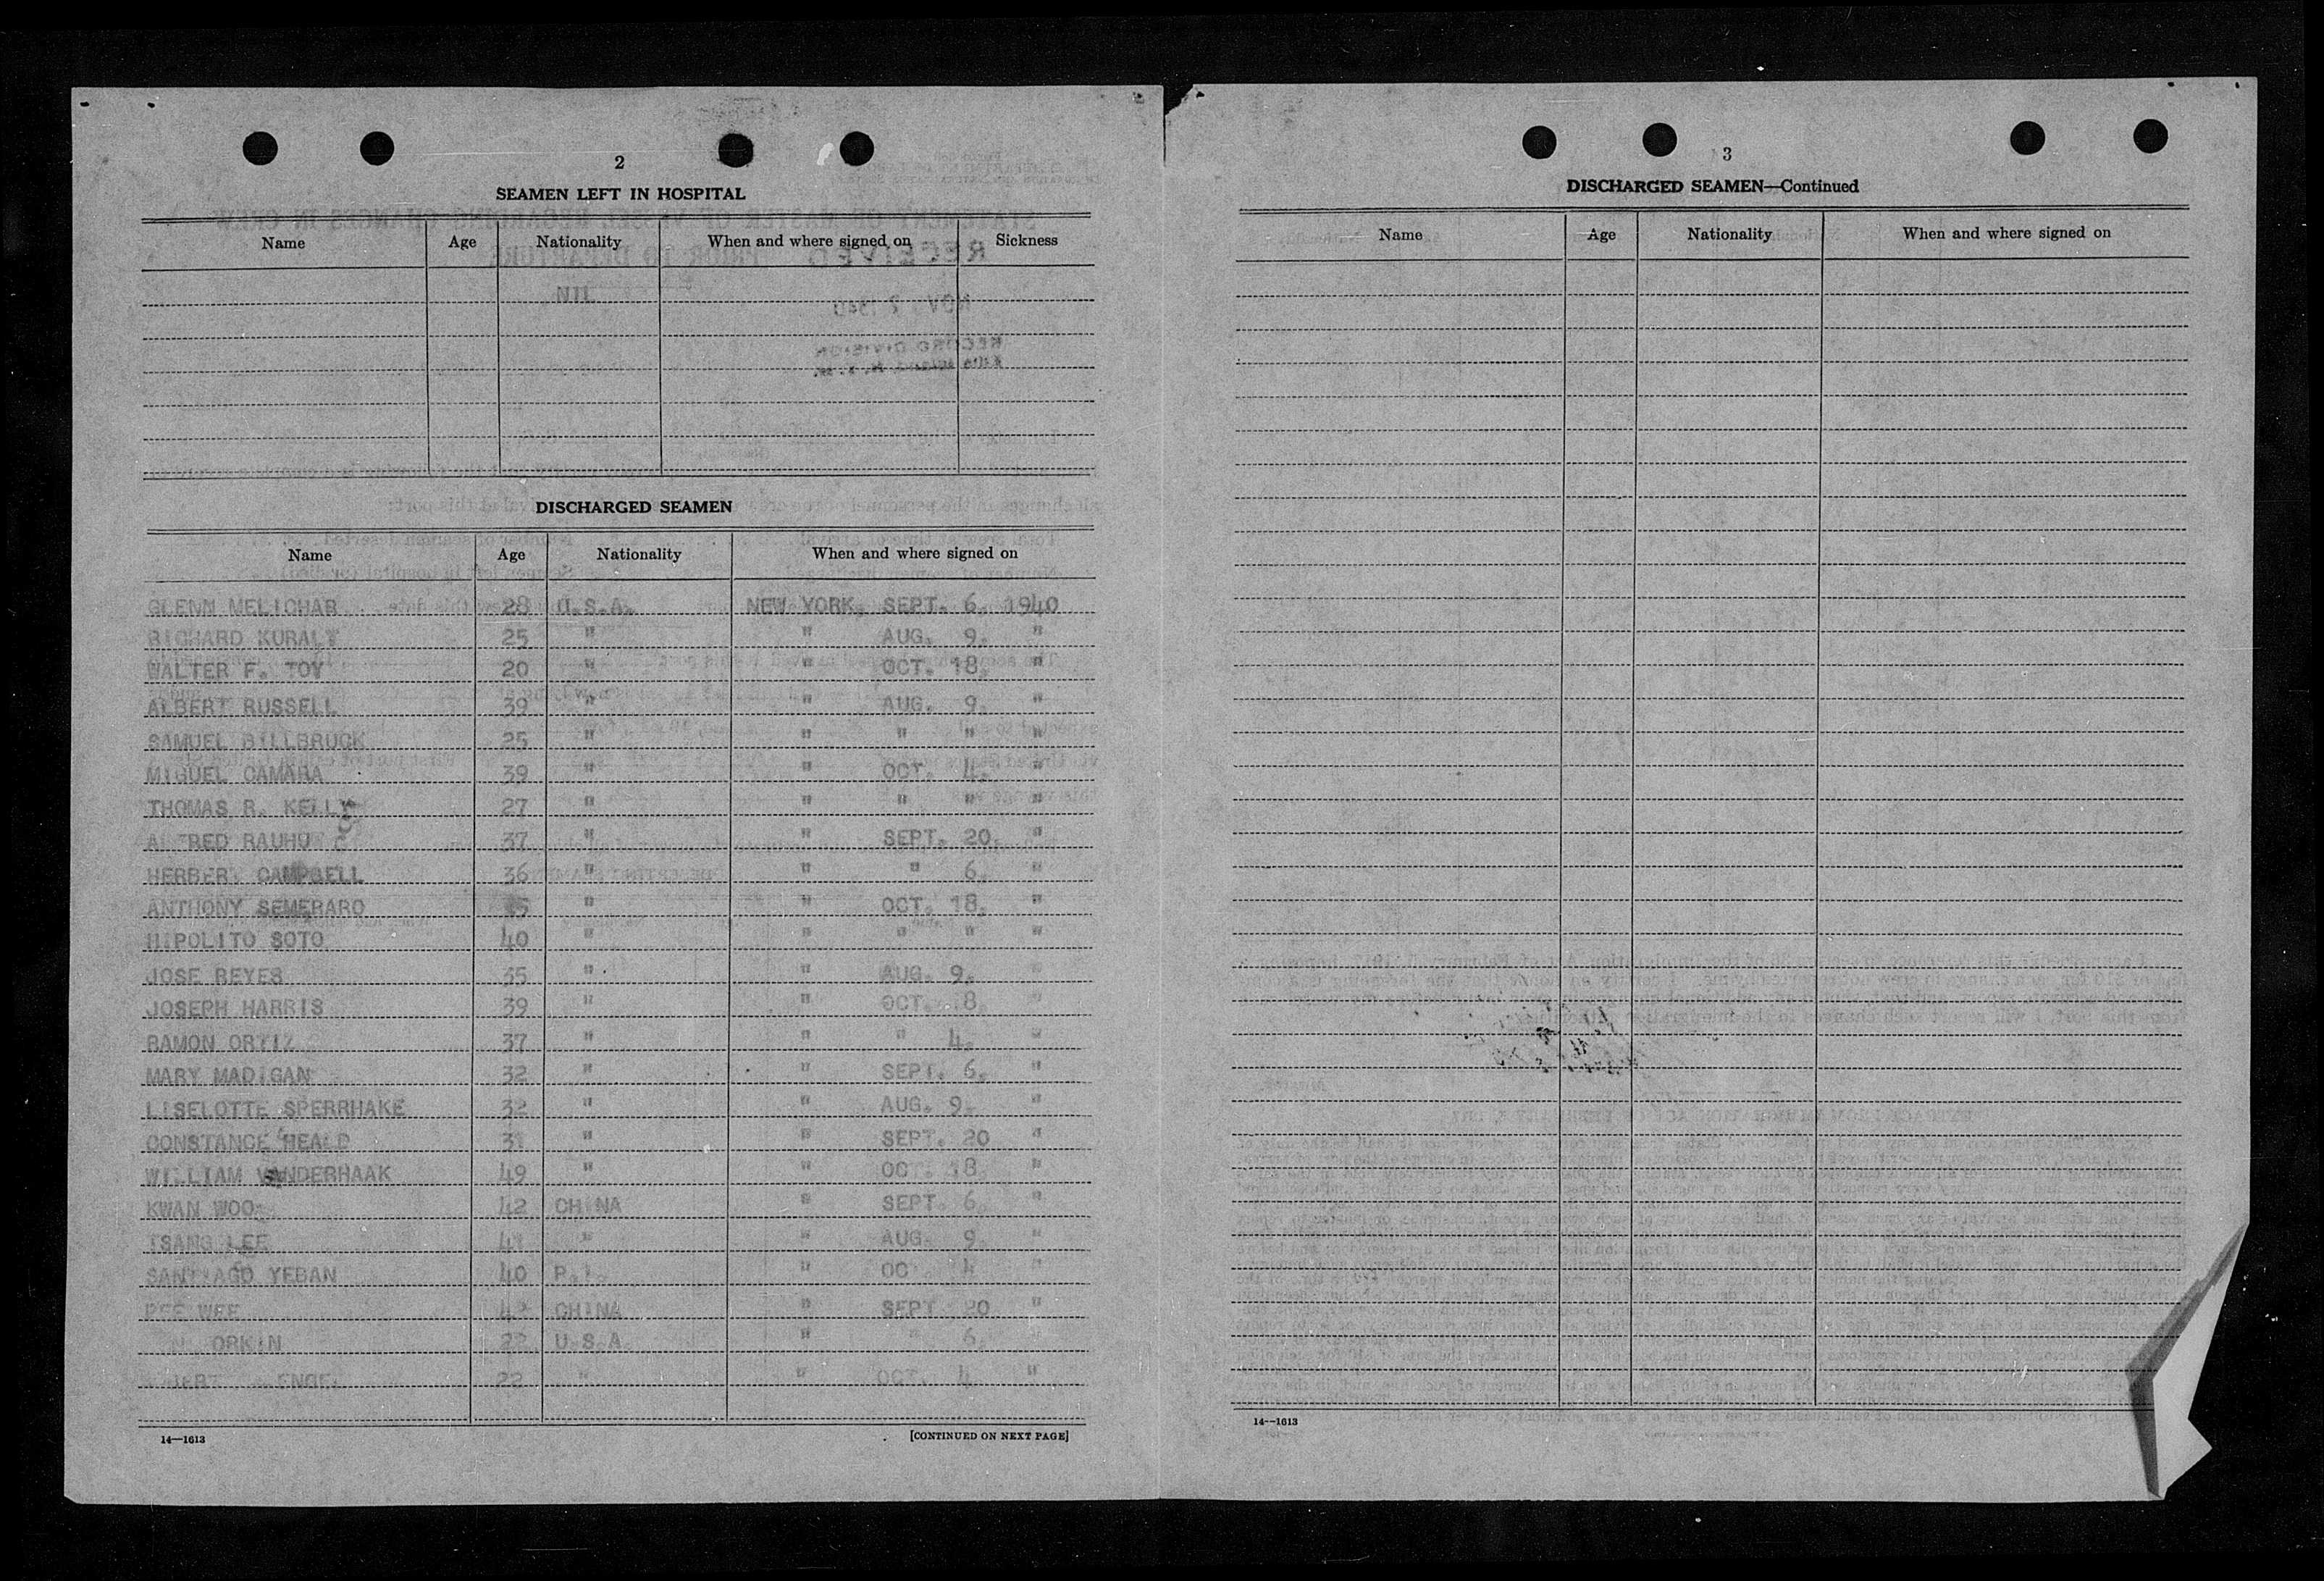 2
SEAMEN LEFT IN HOSPITAL
Name Age Nationality When and where signed on Sickness
DISCHARGED SEAMEN
Name Age Nationality When and where signed on
GLENN MELICHAR 28 U.S.A. NEW YORK, SEPT. 6, 1940
RICHARD KURALY 25 " " AUG. 9, "
WALTER F. TOY 20 " " OCT. 18, "
ALBERT RUSSELL 39 " " AUG. 9, "
SAMUEL BILLBRUCK 25 " " " " "
MIGUEL CAMARA 39 " " OCT. 4, "
THOMAS R. KELLY 27 " " " " "
RAUHU 37 " " SEPT. 20, "
HERBERT CAMPBELL 36 " " " 6, "
ANTHONY SEMERARO " " OCT. 18, "
HIPOLITO SOTO 40 " " " " "
JOSE REYES 35 " " AUG. 9, "
JOSEPH HARRIS 39 " " OCT. 18, "
RAMON ORTIZ 37 " " " 4, "
MARY MADIGAN 32 " " SEPT. 6, "
LISELOTTE SPERRHAKE 32 " " AUG. 9, "
CONSTANCE HEALD 31 " " SEPT. 20 "
WILLIAM VANDERHAAK 49 " " OCT. 18 "
KWAN WOO 42 CHINA " SEPT. 6, "
TSANG LEE 41 " " AUG. 9, "
SANTIAGO YEBAN 40 P.I. " OCT. 4 "
PEE WEE CHINA " SEPT 20 "
ORKIN 22 U.S.A. " " 6,
22 " " OCT. 4 "
14—1613 [CONTINUED ON NEXT PAGE]
3
DISCHARGED SEAMEN—Continued
Name Age Nationality When and where signed on
14—1613